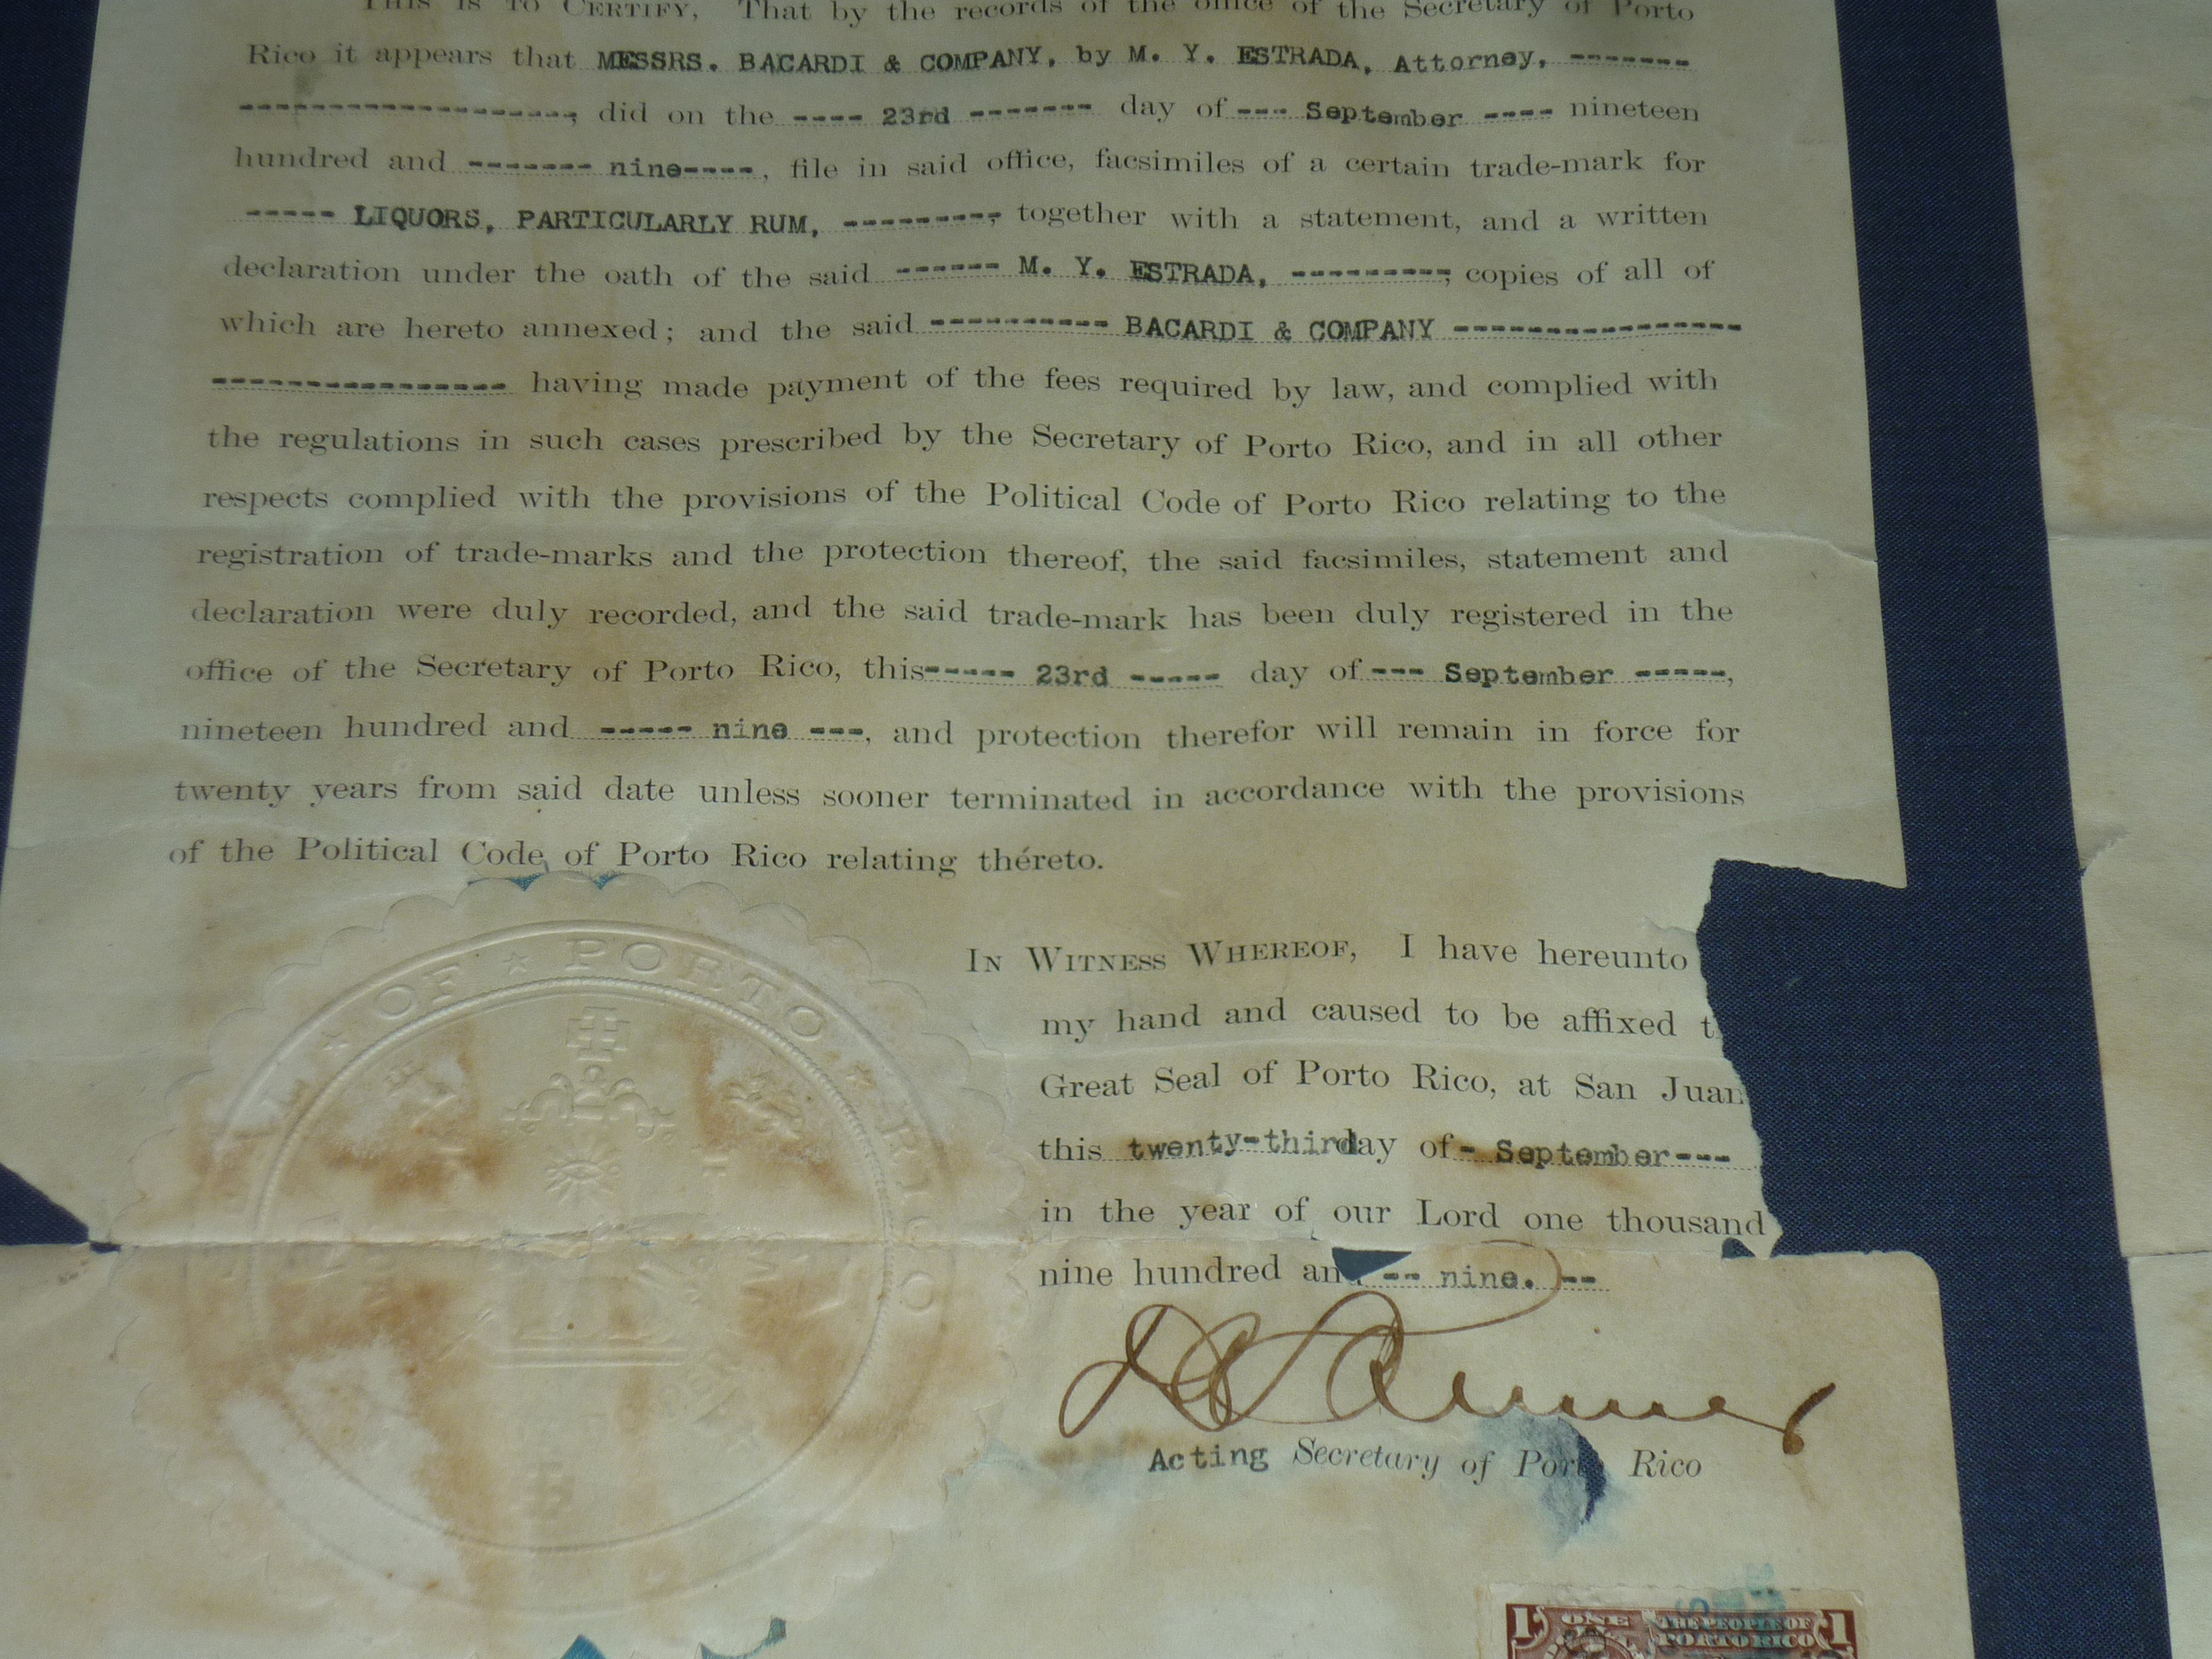 THIS IS TO CERTIFY, That by the records of the office of the Secretary of Porto
Rico it appears that MESSRS. BACARDI & COMPANY, by M. Y. ESTRADA, Attorney, -------
-------------------, did on the ---- 23rd ------- day of --- September ---- nineteen
hundred and ------- nine----, file in said office, facsimiles of a certain trade-mark for
----- LIQUORS, PARTICULARLY RUM, ---------, together with a statement, and a written
declaration under the oath of the said ------ M. Y. ESTRADA, ---------, copies of all of
which are hereto annexed; and the said ---------- BACARDI & COMPANY ----------------
---------------- having made payment of the fees required by law, and complied with
the regulations in such cases prescribed by the Secretary of Porto Rico, and in all other
respects complied with the provisions of the Political Code of Porto Rico relating to the
registration of trade-marks and the protection thereof, the said facsimiles, statement and
declaration were duly recorded, and the said trade-mark has been duly registered in the
office of the Secretary of Porto Rico, this----- 23rd ----- day of --- September -----,
nineteen hundred and ----- nine ---, and protection therefor will remain in force for
twenty years from said date unless sooner terminated in accordance with the provisions
of the Political Code of Porto Rico relating thereto.
OF ★ PORTO ★ RICO
IN WITNESS WHEREOF, I have hereunto
my hand and caused to be affixed
Great Seal of Porto Rico, at San Juan
this twenty-third day of - September---
in the year of our Lord one thousand
nine hundred and -- nine. --
Acting Secretary of Porto Rico
1 ONE THE PEOPLE OF PORTO RICO 1